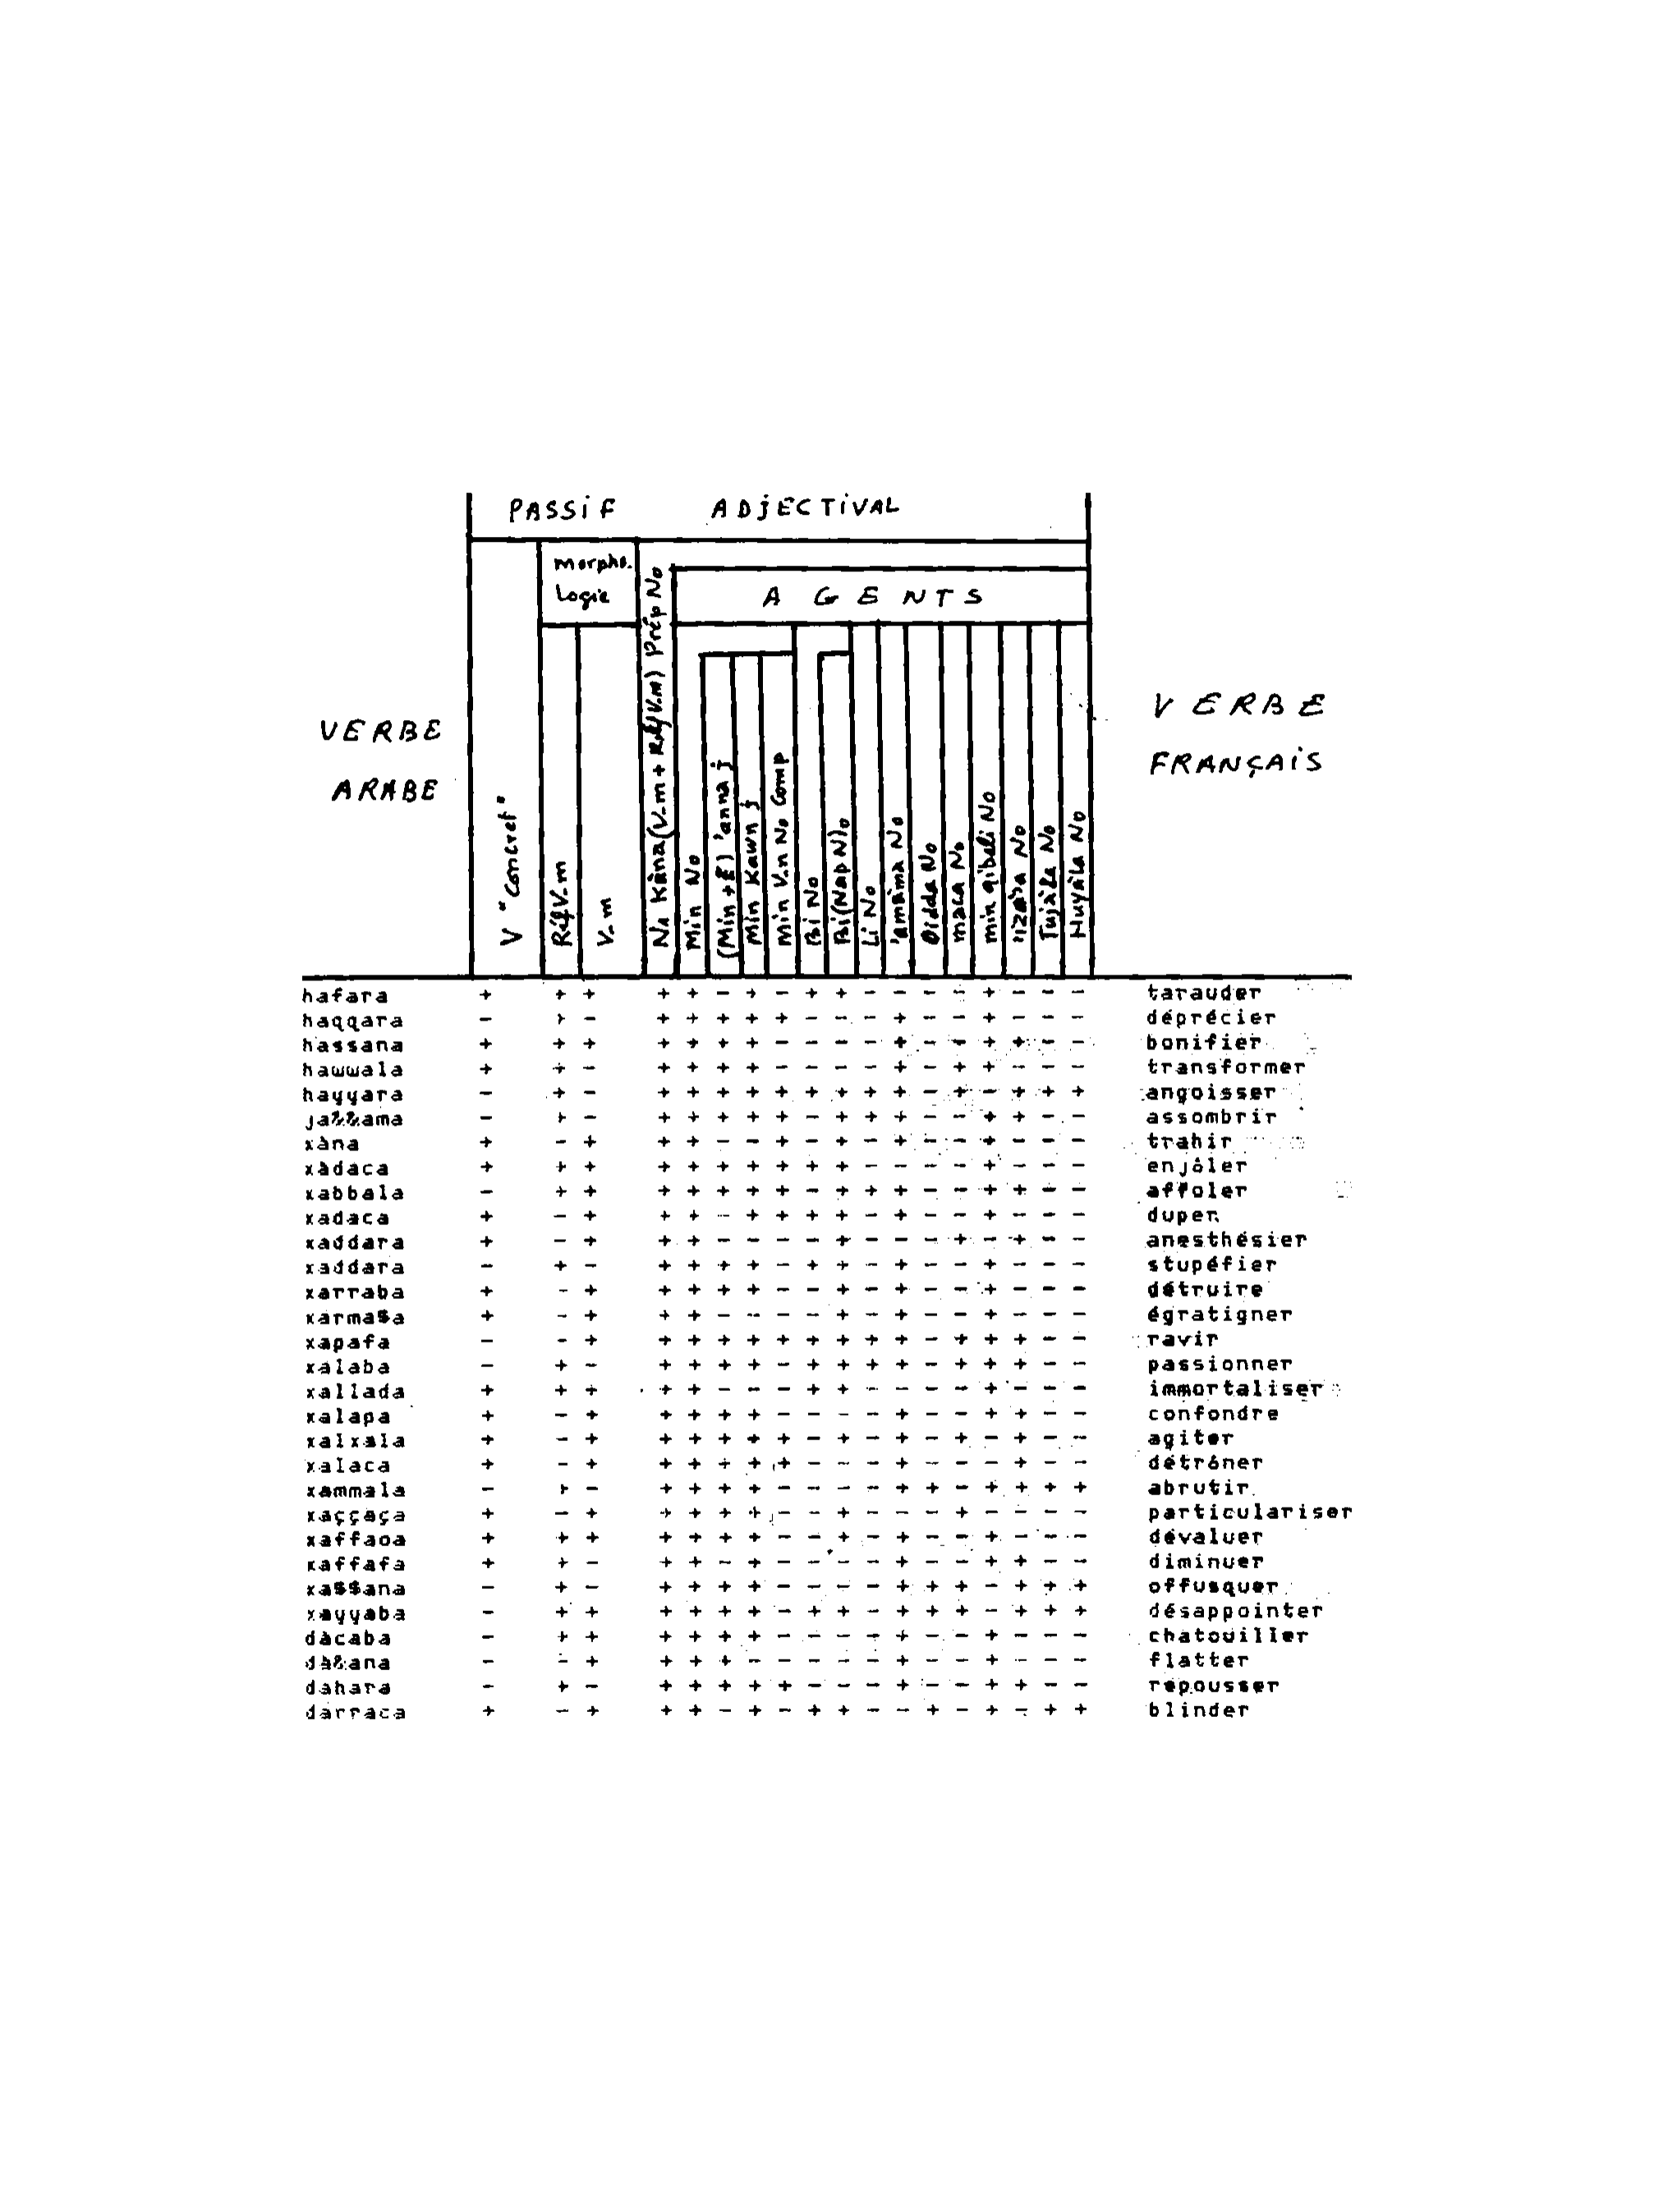 PASSIF ADJECTIVAL
morpho.
logie
AGENTS
VERBE
ARABE
V "concret"
RéfV-m
V-m
N1 Kàna(V-m + Réf V-m) Prép No
Min No
(Min + E) 'anna j
Min Kawn j
Min V-n No Comp
Bi No
Bi(Nap N)o
Li No
'amàma No
Didda No
maca No
min qibali No
Tujàha No
Huyàla No
VERBE
FRANÇAIS
hafara + + + + + - + - + + - - - - + - - - tarauder
haqqara - + - + + + + + - - - + - - + - - - déprécier
hassana + + + + + + + - - - - + - - + + - - bonifier
hawwala + + - + + + + - - - - + - + + - - - transformer
hayyara - + - + + + + + + + + + - + - + + + angoisser
ja&&ama - + - + + + + + - + + + - - + + - - assombrir
xàna + - + + + - - + - + - + - - + - - - trahir
xàdaca + + + + + + + + + + - - - - + - - - enjôler
xabbala - + + + + + + + - + + + - - + + - - affoler
xadaca + - + + + - + + + + - + - - + - - - duper
xaddara + - + + + - - - - + - - - + - + - - anesthésier
xaddara - + - + + + + - + + - + - - + - - - stupéfier
xarraba + - + + + + + - - + - + - - + - - - détruire
xarma$a + - + + + - - - - + - + - - + - - - égratigner
xapafa - - + + + + + + + + + + - + + + - - ravir
xalaba - + - + + + + - + + + + - + + + - - passionner
xallada + + + + + - - - + + - - - - + - - - immortaliser
xalapa + - + + + + + - - - - + - - + + - - confondre
xalxala + - + + + + + + - + - + - + - + - - agiter
xalaca + - + + + + + + - - - + - - - + - - détrôner
xammala - + - + + + + - - - - + + - + + + + abrutir
xaççaça + - + + + + + - - + - - - + - - - - particulariser
xaffaoa + + + + + + + - - + - + - - + - - - dévaluer
xaffafa + + - + + - + - - - - + - - + + - - diminuer
xa$$ana - + - + + + + - - - - + + + - + + + offusquer
xayyaba - + + + + + + - + + - + + + - + + + désappointer
dàcaba - + + + + + + - - - - + - - + - - - chatouiller
dà&ana - - + + + + - - - - - + - - + - - - flatter
dahara - + - + + + + + - - - + - - + + - - repousser
darraca + - + + + - + - + + - - + - + - + + blinder